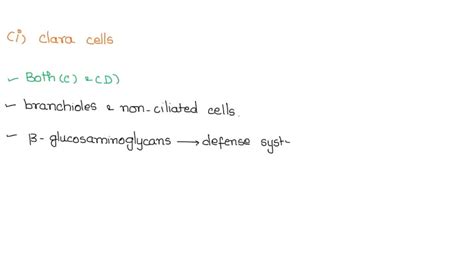 (i) clara cells
- Both (C) & (D)
- branchioles & non-ciliated cells.
- β-glucosaminoglycans → defense syst